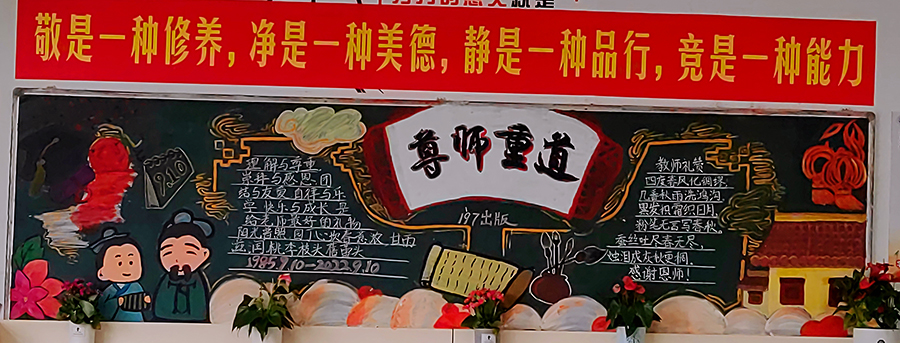 敬是一种修养,净是一种美德,静是一种品行,竞是一种能力
尊师重道
197出版
9.10
理解与尊重
崇拜与感恩团
结与友爱自祥与乐
学快乐与成长是
给老师最好的礼物
阳光普照园丁心
桃李枝头
1985.9.10-2022.9.10
教师礼赞
四度春风化绸缪
几番秋雨洗鸿沟
黑发积霜织日月
粉笔无言写春秋
蚕丝吐尽春无尽,
烛泪成灰秋更稠
感谢恩师!